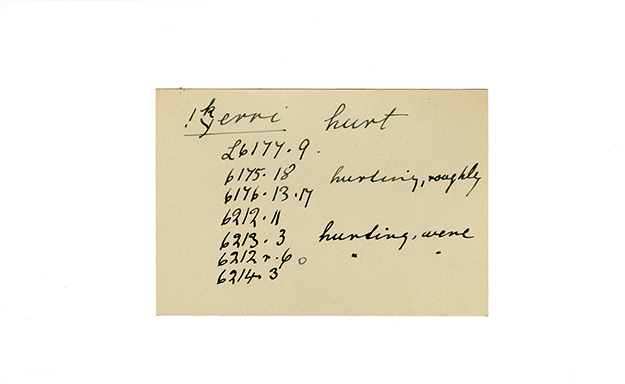 !kerri hurt
L6177.9.
6175.18 hurting, roughly
6176.13.17
6212.11
6213.3 hurting, were
6212r.6 " "
6214.3